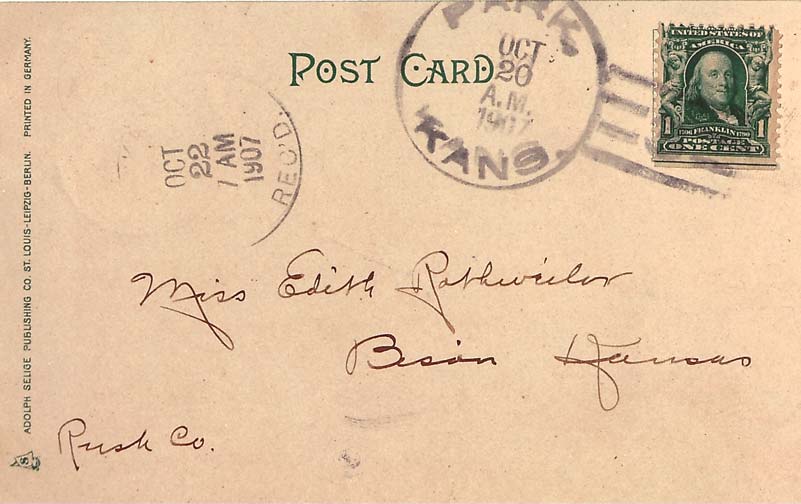 POST CARD
PARK,
KANS.
OCT
20
A.M.
1907
UNITED STATES OF
AMERICA
1 1706 FRANKLIN 1790 1
POSTAGE
ONE CENT
OCT
22
7 AM
1907
REC'D.
Miss Edith Rothweiler
Bison Kansas
Rush Co.
ADOLPH SELIGE PUBLISHING CO. ST. LOUIS-LEIPZIG-BERLIN. PRINTED IN GERMANY.